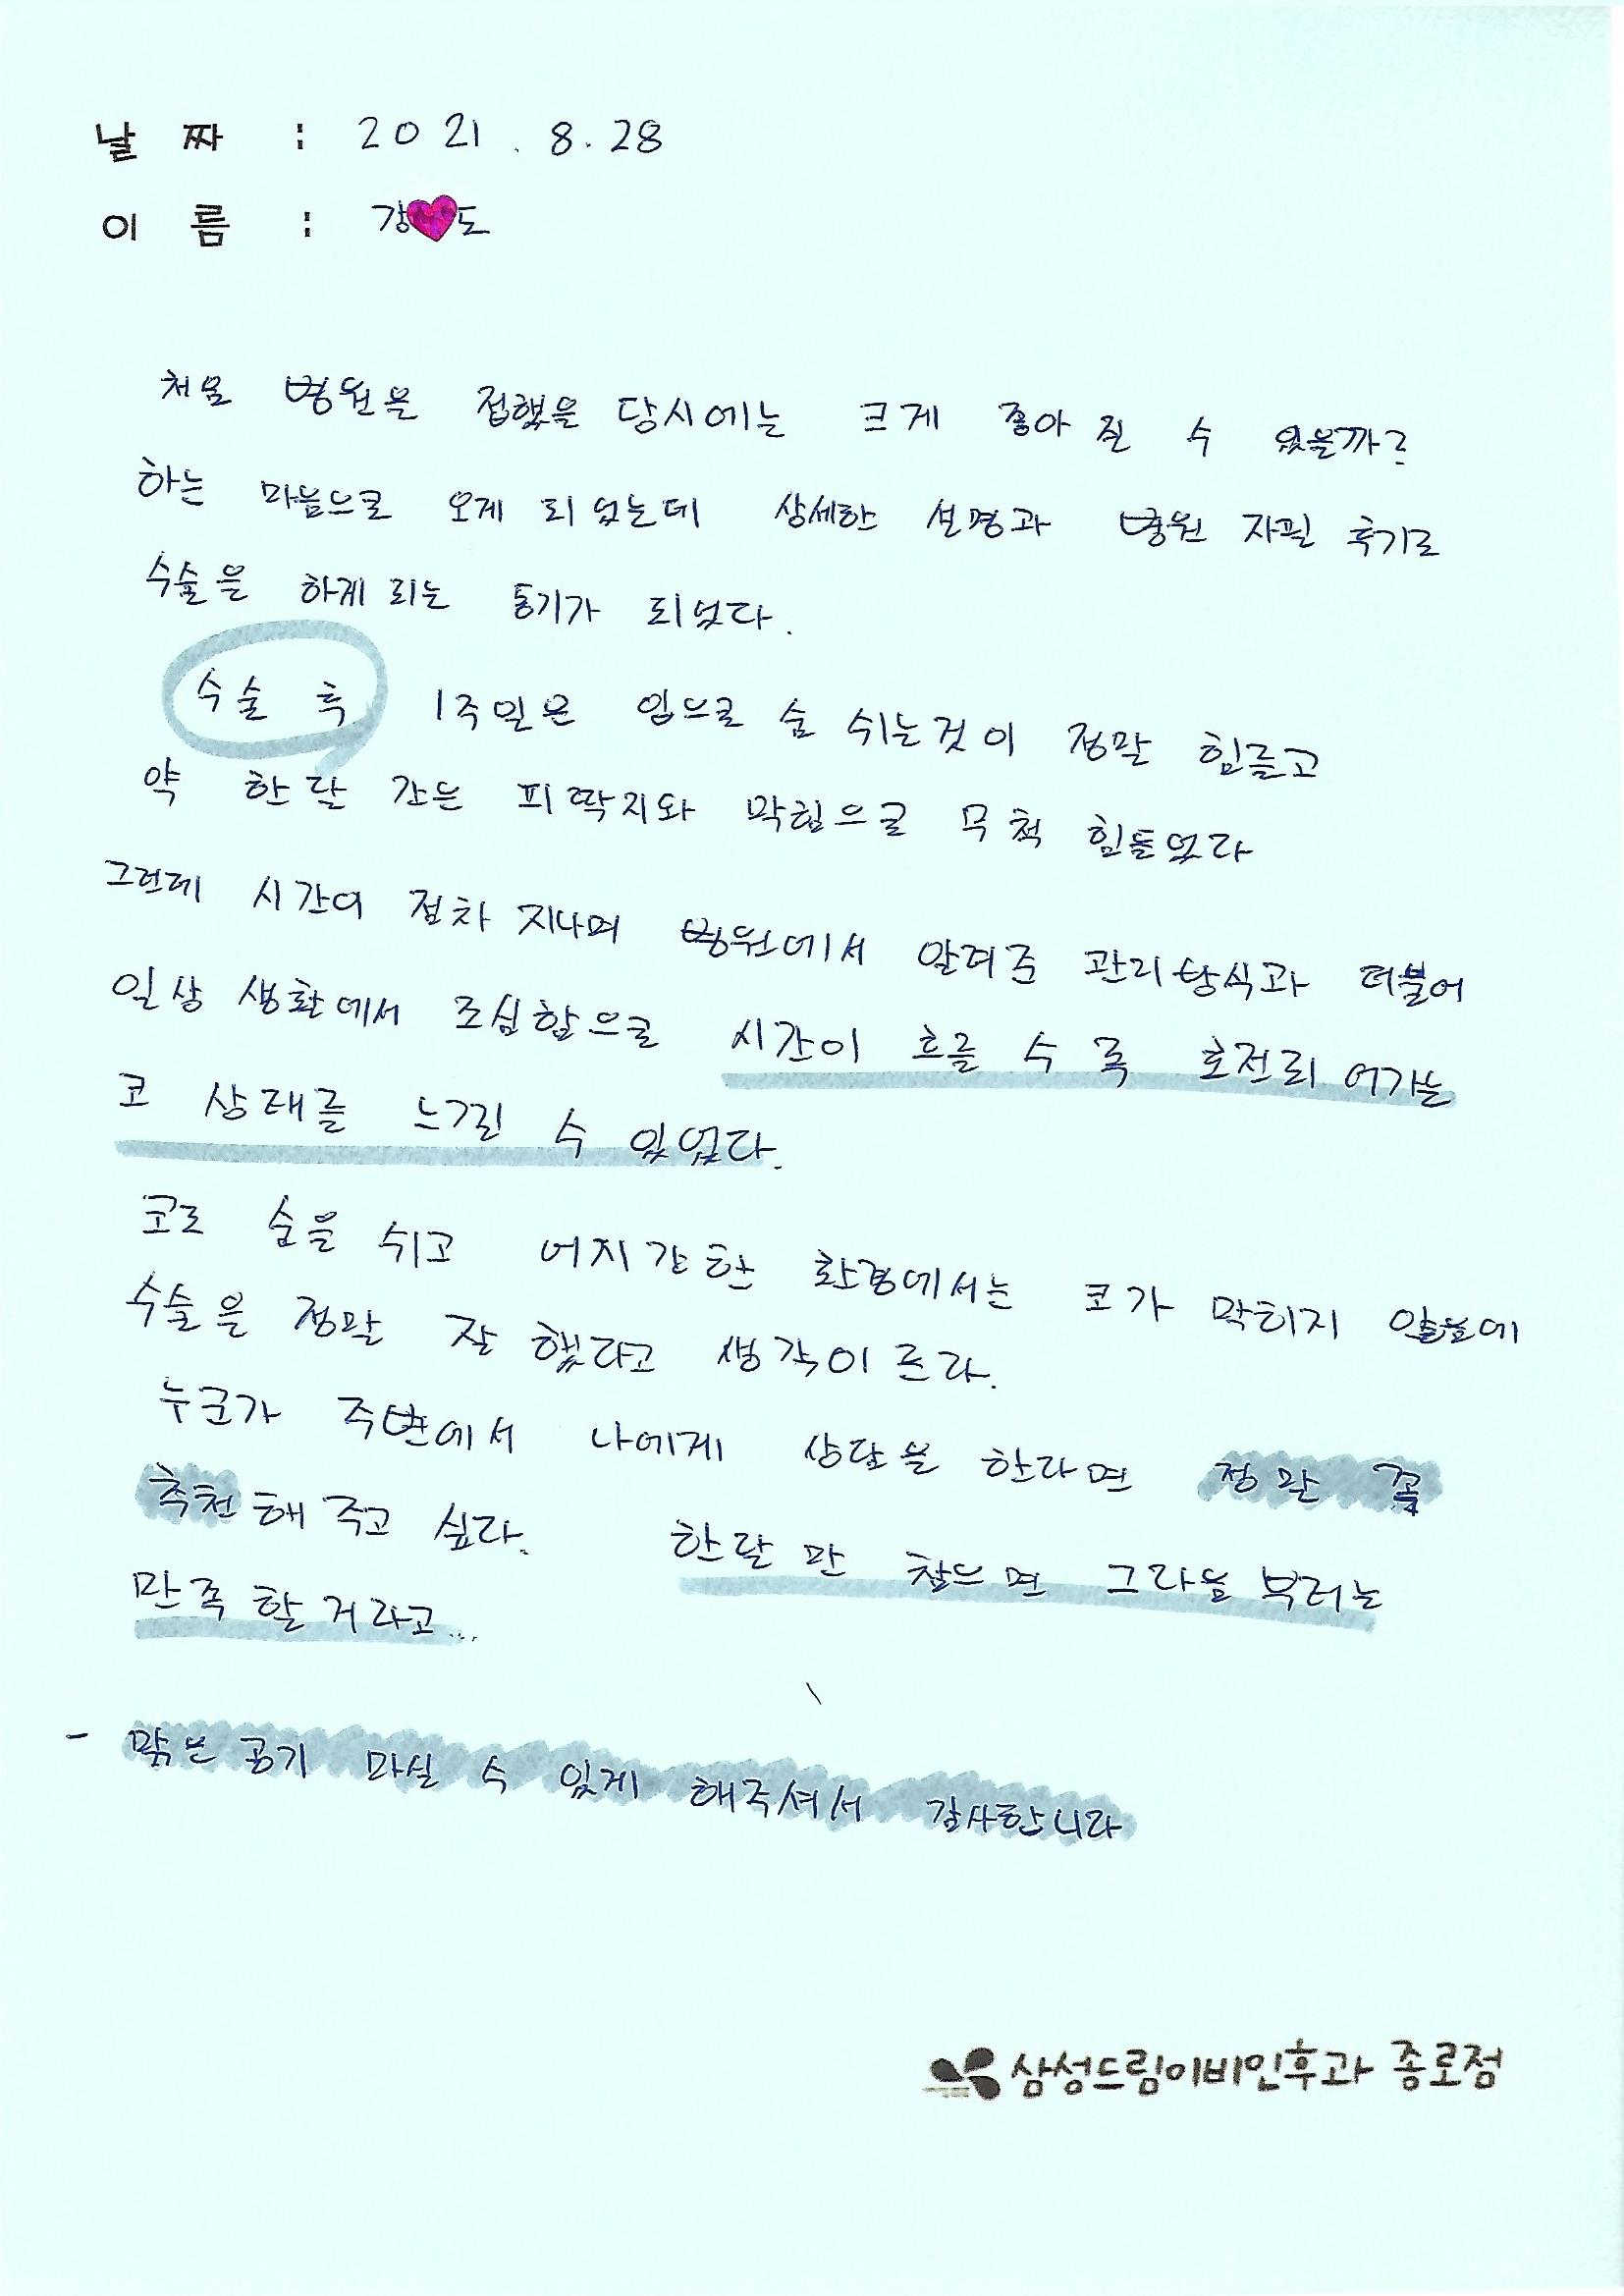 날 짜 : 2021. 8. 28
이 름 : 강♥도
처음 병원을 접했을 당시에는 크게 좋아 질 수 있을까?
하는 마음으로 오게 되었는데 상세한 설명과 병원 자필 후기로
수술을 하게 되는 동기가 되었다.
수술 후 1주일은 입으로 숨 쉬는것이 정말 힘들고
약 한달 간은 피딱지와 막힘으로 무척 힘들었다
그런데 시간이 점차 지나며 병원에서 알려준 관리방식과 더불어
일상 생활에서 조심함으로 시간이 흐를 수 록 호전되어가는
코 상태를 느낄 수 있었다.
코로 숨을 쉬고 어지간한 환경에서는 코가 막히지 않음에
수술을 정말 잘 했다고 생각이 든다.
누군가 주변에서 나에게 상담을 한다면 정말 꼭
추천해 주고 싶다. 한달 만 참으면 그다음 부터는
만족 할 거라고...
- 맑은 공기 마실 수 있게 해주셔서 감사합니다
삼성드림이비인후과 종로점